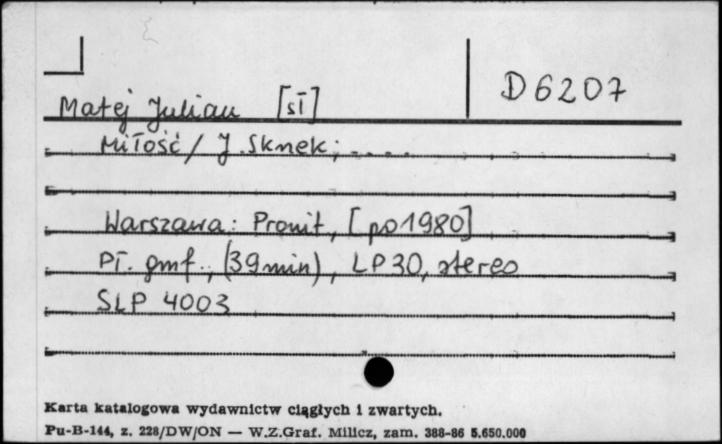 D 6207
Matej Julian [sł]
Miłość / J. Sknek; ....
Warszawa: Pronit, [po 1980]
Pł. gmf., (39 min), LP 30, stereo
SLP 4003
Karta katalogowa wydawnictw ciągłych i zwartych.
Pu-B-144, z. 228/DW/ON — W.Z.Graf. Milicz, zam. 388-86 5.650.000